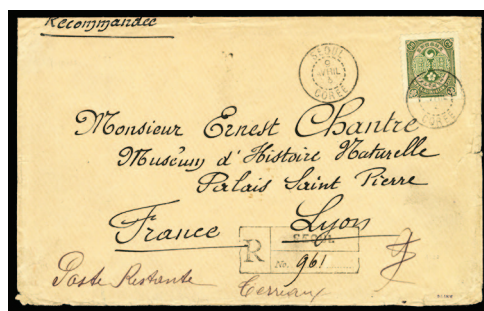 Recommandée
SEOUL
9
AVRIL
COREE
COREE
Monsieur Ernest Chantre
Muséum d'Histoire Naturelle
Palais Saint Pierre
France Lyon
R
SEOUL
No. 961
Poste Restante